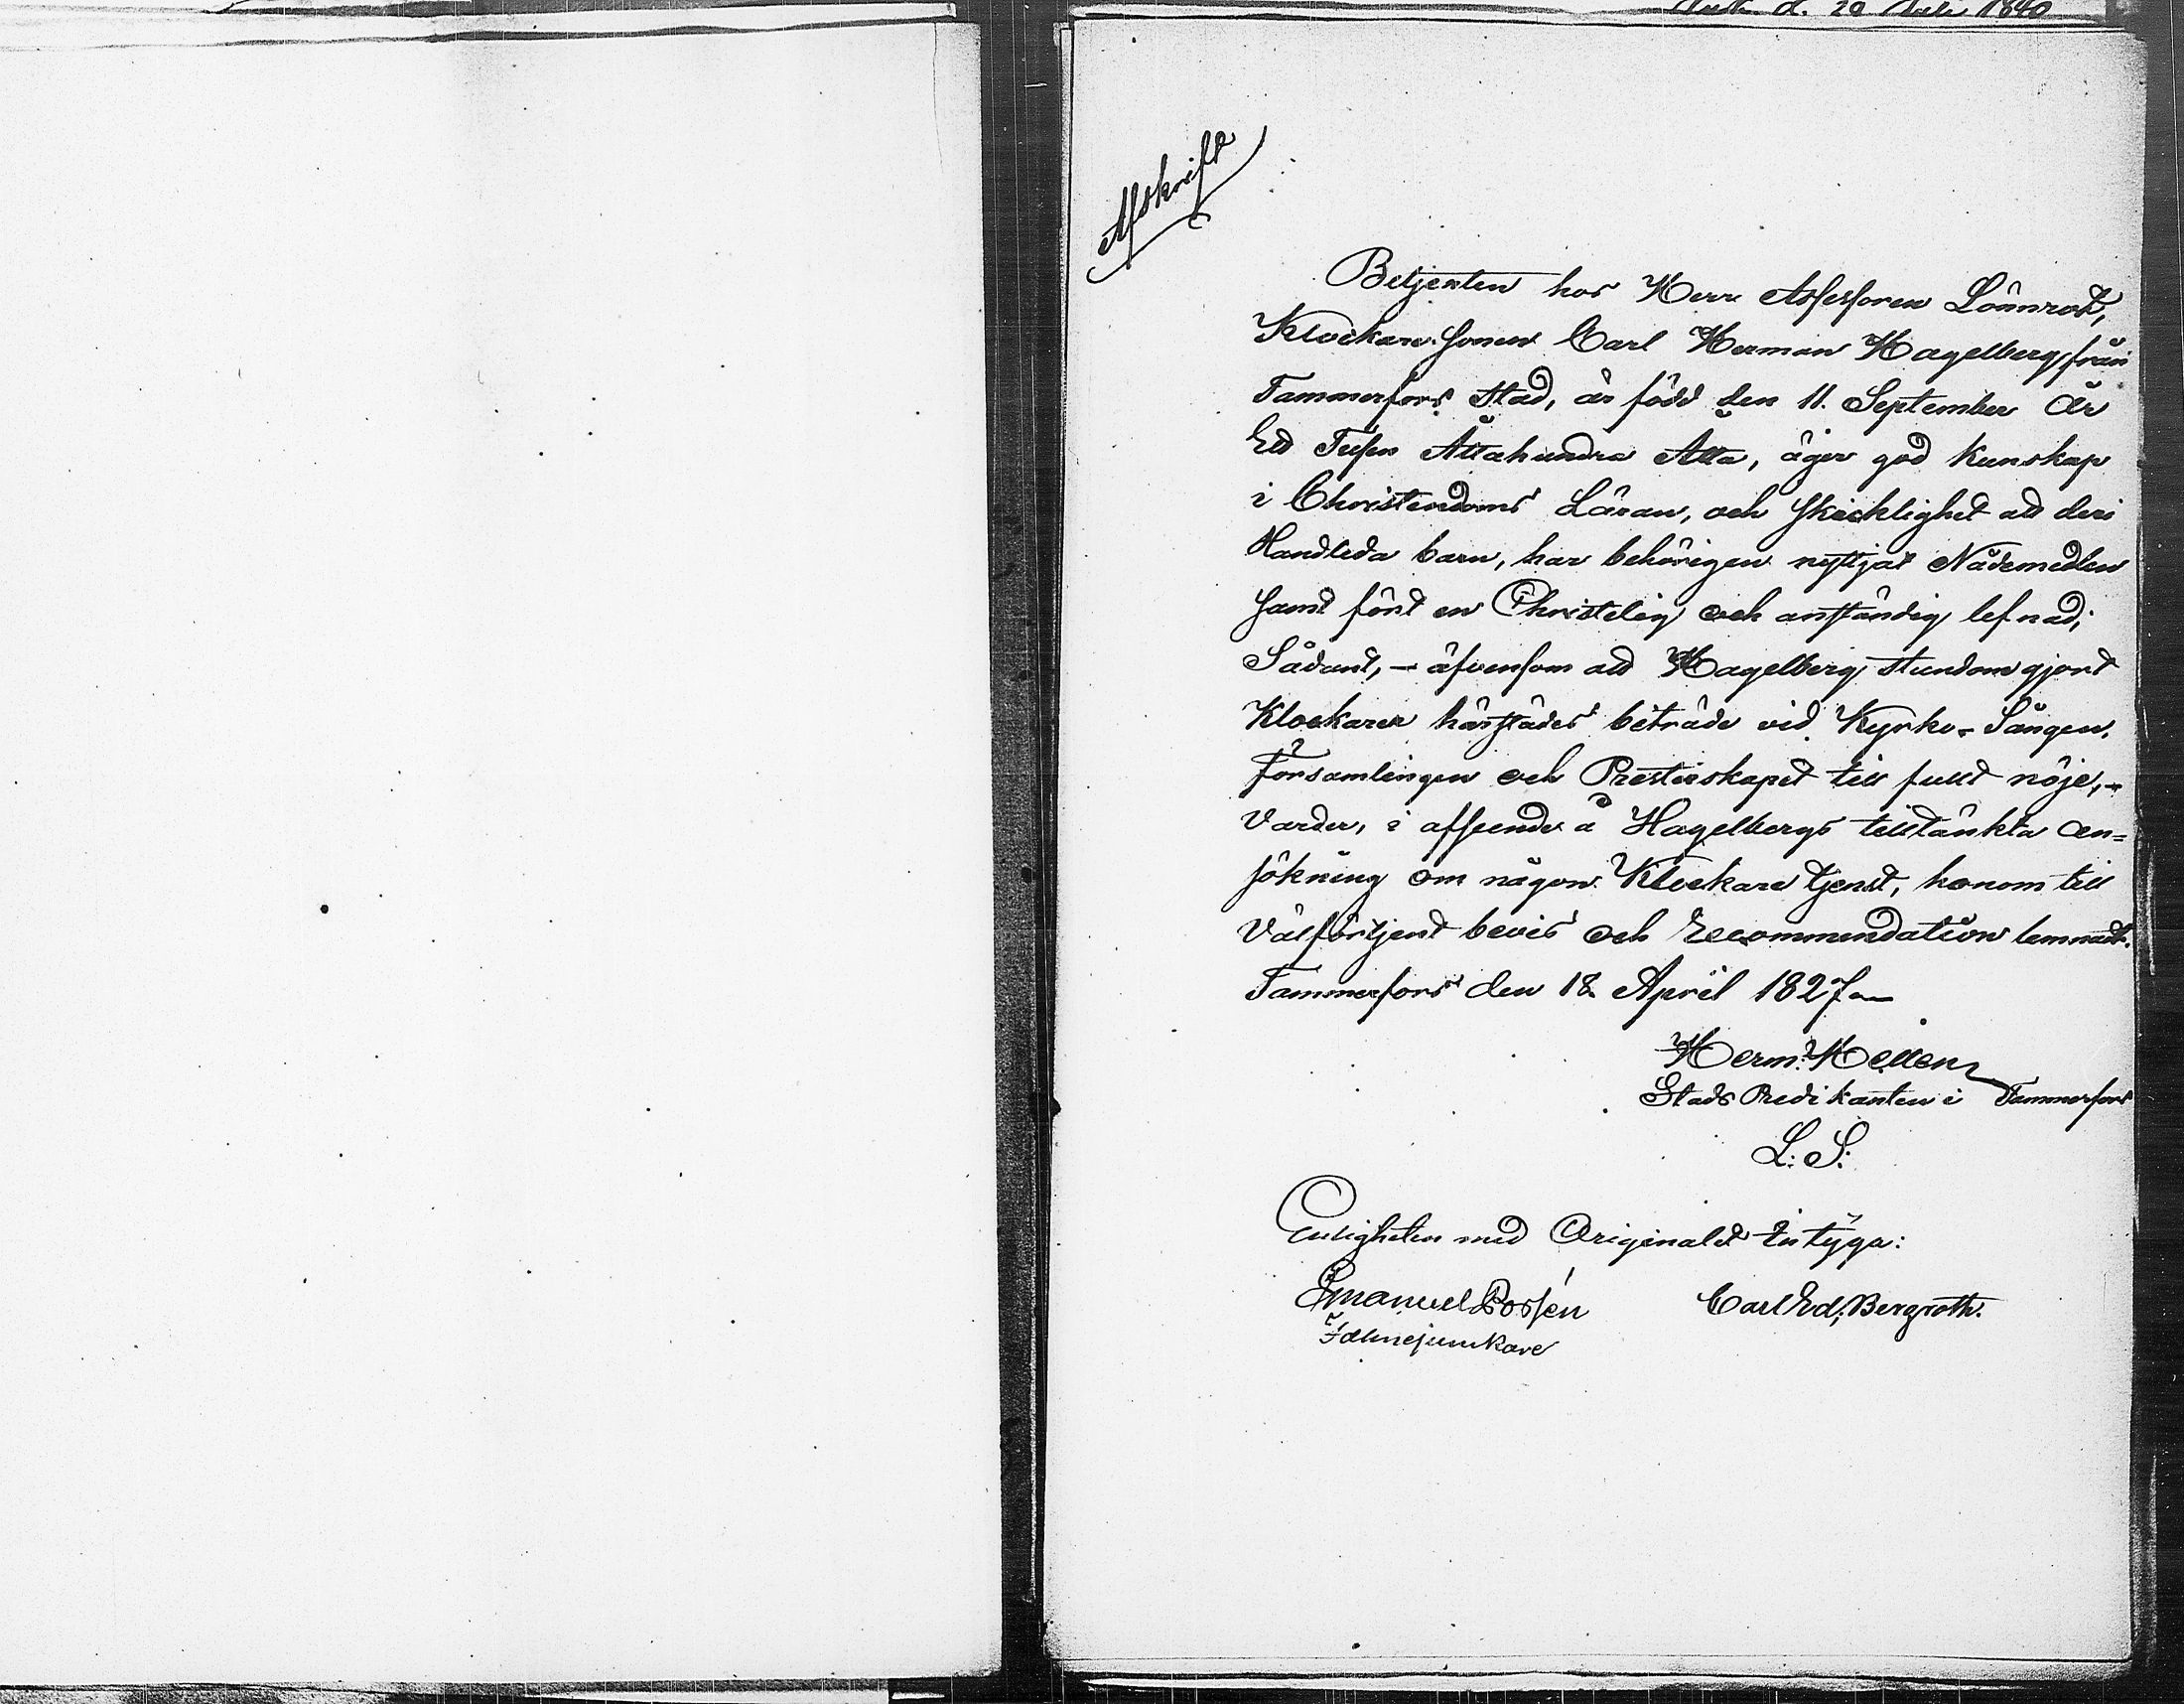 d. 20 Juli 1840
Afskrift
Betjenten hos Herr Assessoren Lönnrot,
Klockare sonen Carl Herman Hagelberg från
Tammerfors Stad, är född den 11. September År
Ett Tusen Åttahundra Åtta, äger god kunskap
i Christendoms Läran, och skicklighet att deri
Handleda barn, har behörigen nyttjat Nådemedlen
samt fört en Christelig och anständig lefnad;
Sådant, – äfvensom att Hagelberg stundom gjort
Klockaren härstädes biträde vid Kyrko-Sången,
Församlingen och Presterskapet till fullt nöje, –
Varder, i afseende å Hagelbergs tilltänkta an=
sökning om någon Klockare tjenst, honom till
Välförtjent bevis och Recommendation lemnadt.
Tammerfors den 18. April 1827.–
Herm: Hellén
Stads Predikanten i Tammerfors
L: S:
Enligheten med Originalet intyga:
Emanuel Rossén Carl Ed; Bergroth.
Fältmejunkare